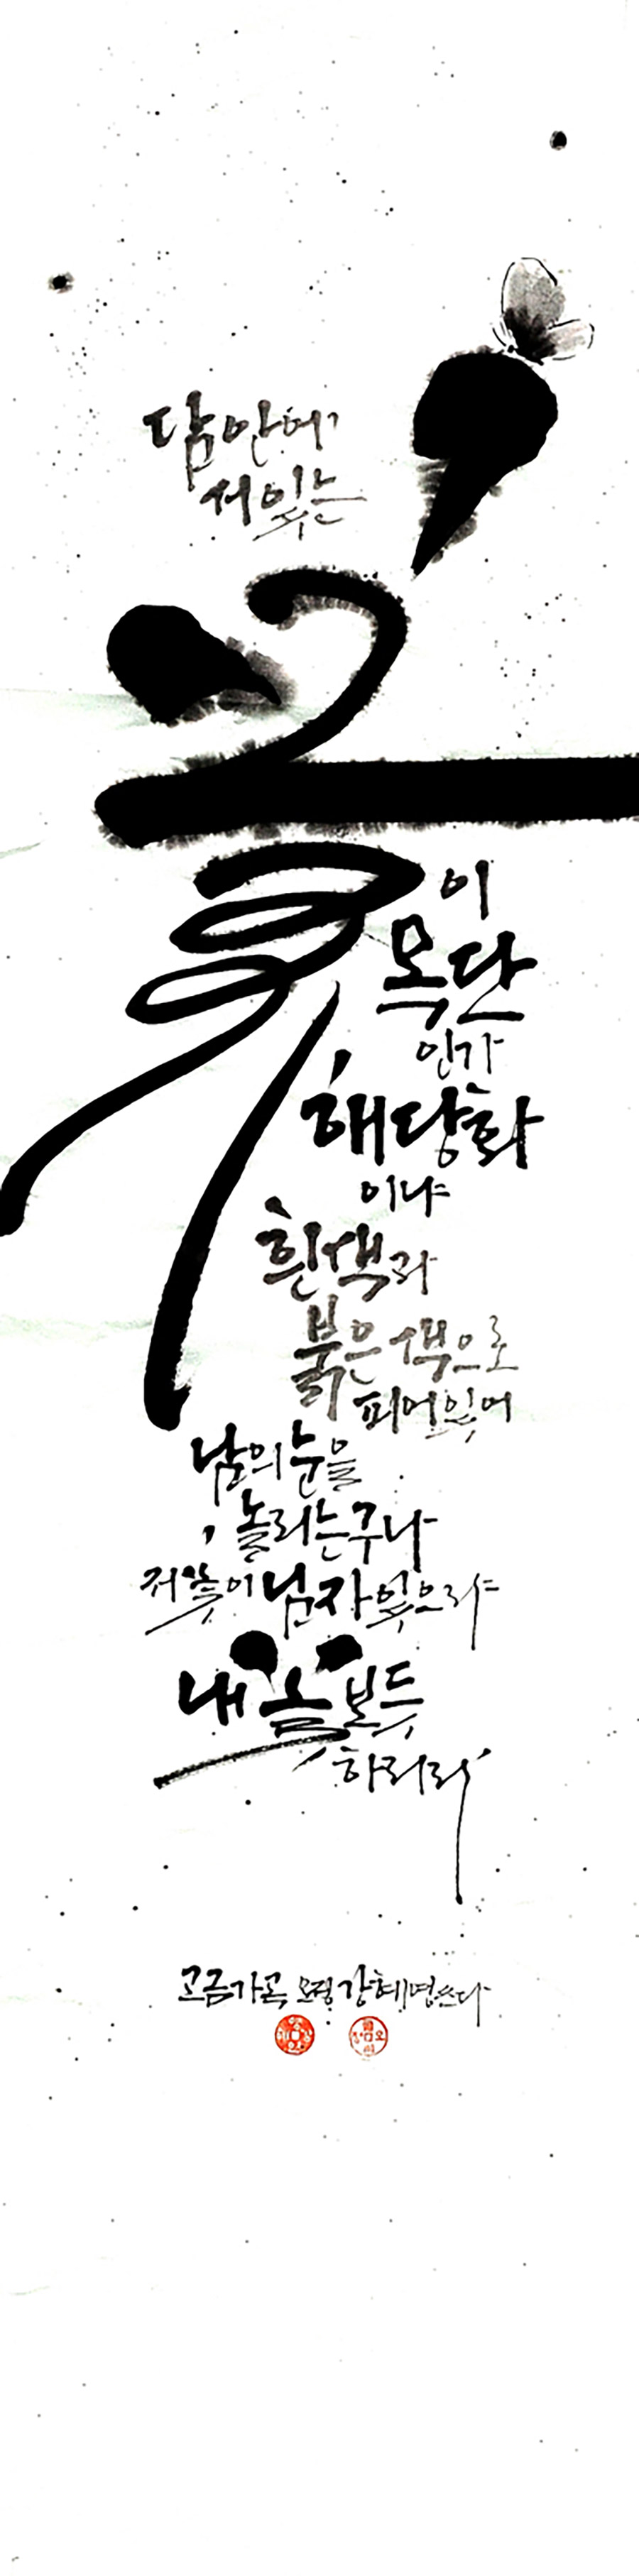 담 안에
서 있는
꽃
이
목단
인가
해당화
이냐
흰색과
붉은색으로
피어있어
남의 눈을
놀리는구나
저 꽃이 님자 있으랴
내 꽃 보듯
하리라
고금가곡 오령 강혜명 쓰다